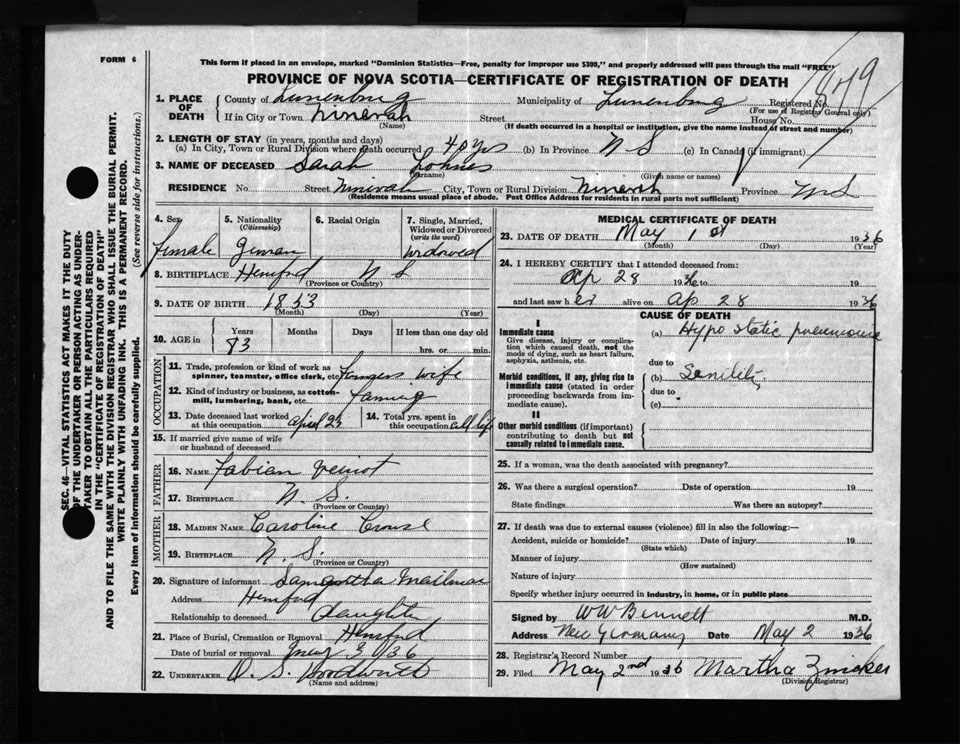 FORM 6
This form if placed in an envelope, marked "Dominion Statistics—Free, penalty for improper use $300," and properly addressed will pass through the mail "FREE"
PROVINCE OF NOVA SCOTIA—CERTIFICATE OF REGISTRATION OF DEATH
1. PLACE OF DEATH County of Lunenburg Municipality of Lunenburg Registered No.
(For use of Registrar General only)
If in City or Town Ninevah Street House No.
(Name) (If death occurred in a hospital or institution, give the name instead of street and number)
2. LENGTH OF STAY (in years, months and days)
(a) In City, Town or Rural Division where death occurred 40 yrs (b) In Province N S (c) In Canada (if immigrant)
3. NAME OF DECEASED Sarah Lohnes
(Surname) (Given name or names)
RESIDENCE No. Street Ninivah City, Town or Rural Division Ninevah Province N S
(Residence means usual place of abode. Post Office Address for residents in rural parts not sufficient)
4. Sex 5. Nationality (Citizenship) 6. Racial Origin 7. Single, Married, Widowed or Divorced (write the word)
female German Widowed
8. BIRTHPLACE Hemford N S
(Province or Country)
9. DATE OF BIRTH 1853
(Month) (Day) (Year)
10. AGE in Years Months Days If less than one day old
83 hrs. or min.
OCCUPATION
11. Trade, profession or kind of work as spinner, teamster, office clerk, etc. Farmers wife
12. Kind of industry or business, as cotton-mill, lumbering, bank, etc. Farming
13. Date deceased last worked at this occupation april 14. Total yrs. spent in this occupation all life
15. If married give name of wife or husband of deceased
FATHER
16. NAME Fabian Veinot
17. BIRTHPLACE N. S.
(Province or Country)
MOTHER
18. MAIDEN NAME Caroline Crouse
19. BIRTHPLACE N. S.
(Province or Country)
20. Signature of informant Samantha Mailman
Address Hemford
Relationship to deceased daughter
21. Place of Burial, Cremation or Removal Hemford
Date of burial or removal May 3 1936
22. UNDERTAKER
(Name and address)
MEDICAL CERTIFICATE OF DEATH
23. DATE OF DEATH May 1 st 1936
(Month) (Day) (Year)
24. I HEREBY CERTIFY that I attended deceased from:
Ap 28 1936 to
and last saw her alive on Ap 28 1936
CAUSE OF DEATH
I
Immediate cause (a) Hypo static pneumonia
Give disease, injury or complication which caused death, not the mode of dying, such as heart failure, asphyxia, asthenia, etc.
due to
Morbid conditions, if any, giving rise to immediate cause (stated in order proceeding backwards from immediate cause). (b) Senility
due to
(c)
II
Other morbid conditions (if important) contributing to death but not causally related to immediate cause.
25. If a woman, was the death associated with pregnancy?
26. Was there a surgical operation? Date of operation 19
State findings Was there an autopsy?
27. If death was due to external causes (violence) fill in also the following:—
Accident, suicide or homicide? Date of injury 19
(State which)
Manner of injury
(How sustained)
Nature of injury
Specify whether injury occurred in industry, in home, or in public place
Signed by W W Bennett M.D.
Address New Germany Date May 2 1936
28. Registrar's Record Number
29. Filed May 2nd 1936 Martha Zwicker
(Division Registrar)
SEC. 46—VITAL STATISTICS ACT MAKES IT THE DUTY
OF THE UNDERTAKER OR PERSON ACTING AS UNDER-
TAKER TO OBTAIN ALL THE PARTICULARS REQUIRED
IN THE "CERTIFICATE OF REGISTRATION OF DEATH"
AND TO FILE THE SAME WITH THE DIVISION REGISTRAR WHO SHALL ISSUE THE BURIAL PERMIT.
WRITE PLAINLY WITH UNFADING INK. THIS IS A PERMANENT RECORD.
Every item of information should be carefully supplied. (See reverse side for instructions.)